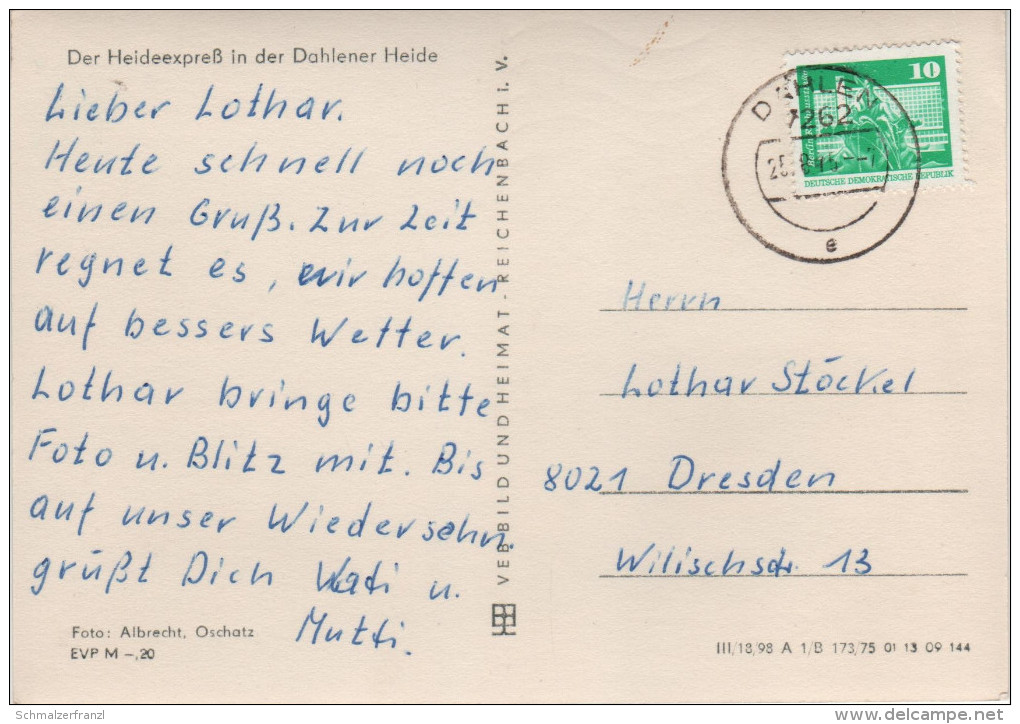 Der Heideexpreß in der Dahlener Heide
Lieber Lothar.
Heute schnell noch
einen Gruß. Zur Zeit
regnet es, wir hoffen
auf bessers Wetter.
Lothar bringe bitte
Foto u. Blitz mit. Bis
auf unser Wiedersehn.
grüßt Dich Vati u.
Mutti.
Foto: Albrecht, Oschatz
EVP M –,20
VEB BILD UND HEIMAT · REICHENBACH i. V.
10
DEUTSCHE DEMOKRATISCHE REPUBLIK
DAHLEN
7262
e
Herrn
Lothar Stöckel
8021 Dresden
Wilischstr. 13
III/18/98 A 1/B 173/75 01 13 09 144
Schmalzerfranzl
delcampe.net